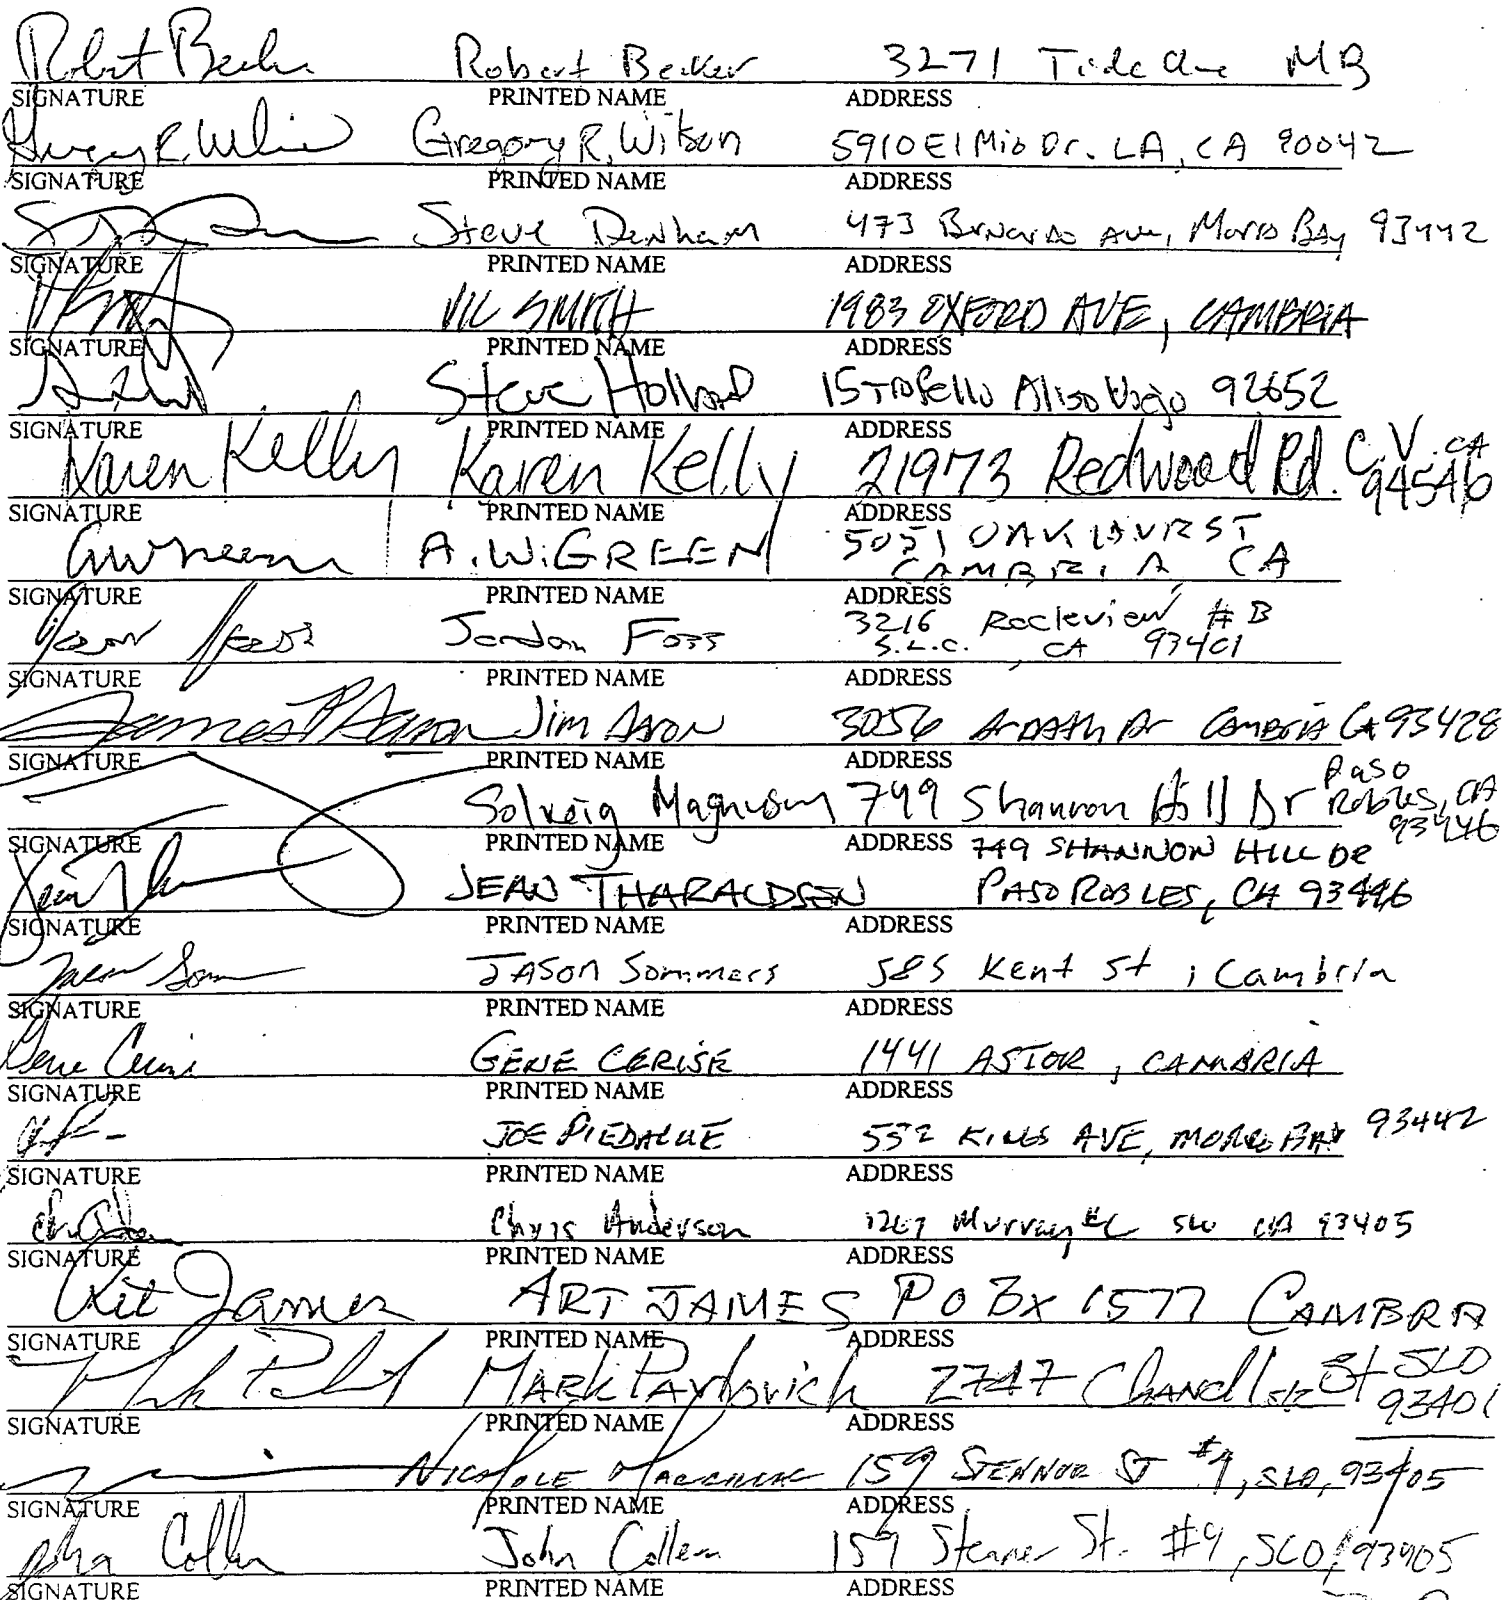 Robert Becker Robert Becker 3271 Tide Ave MB
SIGNATURE PRINTED NAME ADDRESS
Gregory R. Wilson Gregory R. Wilson 5910 El Mio Dr. LA, CA 90042
SIGNATURE PRINTED NAME ADDRESS
Steve Denham 473 Bernardo Ave, Morro Bay 93442
SIGNATURE PRINTED NAME ADDRESS
VIC SMITH 1983 OXFORD AVE, CAMBRIA
SIGNATURE PRINTED NAME ADDRESS
Steve Holland Aliso Viejo 92652
SIGNATURE PRINTED NAME ADDRESS
Karen Kelly Karen Kelly 21973 Redwood Rd. C.V. CA 94546
SIGNATURE PRINTED NAME ADDRESS
AW Green A.W. GREEN OAKHURST
CAMBRIA, CA
SIGNATURE PRINTED NAME ADDRESS
Jordan Foss 3216 Rockview #B
S.L.O. CA 93401
SIGNATURE PRINTED NAME ADDRESS
James P Aaron Jim Aaron 3056 Ardath Dr Cambria CA 93428
SIGNATURE PRINTED NAME ADDRESS
Solveig Magnuson 749 Shannon Hill Dr Paso Robles, CA 93446
SIGNATURE PRINTED NAME ADDRESS
749 SHANNON HILL DR
JEAN THARALDSEN PASO ROBLES, CA 93446
SIGNATURE PRINTED NAME ADDRESS
JASON Sommers 585 Kent St, Cambria
SIGNATURE PRINTED NAME ADDRESS
Gene Cerise GENE CERISE 1441 ASTOR, CAMBRIA
SIGNATURE PRINTED NAME ADDRESS
JOE PIEDALUE 552 KINGS AVE, MORRO BAY 93442
SIGNATURE PRINTED NAME ADDRESS
Chris Anderson Murray SLO CA 93405
SIGNATURE PRINTED NAME ADDRESS
Art James ART JAMES PO BX 1577 CAMBRIA
SIGNATURE PRINTED NAME ADDRESS
MARK Pavlovich 2747 Chandler St SLO
93401
SIGNATURE PRINTED NAME ADDRESS
NICOLE 159 STENNER ST, SLO, 93405
SIGNATURE PRINTED NAME ADDRESS
John 159 Stenner St. #4, SLO, 93405
SIGNATURE PRINTED NAME ADDRESS